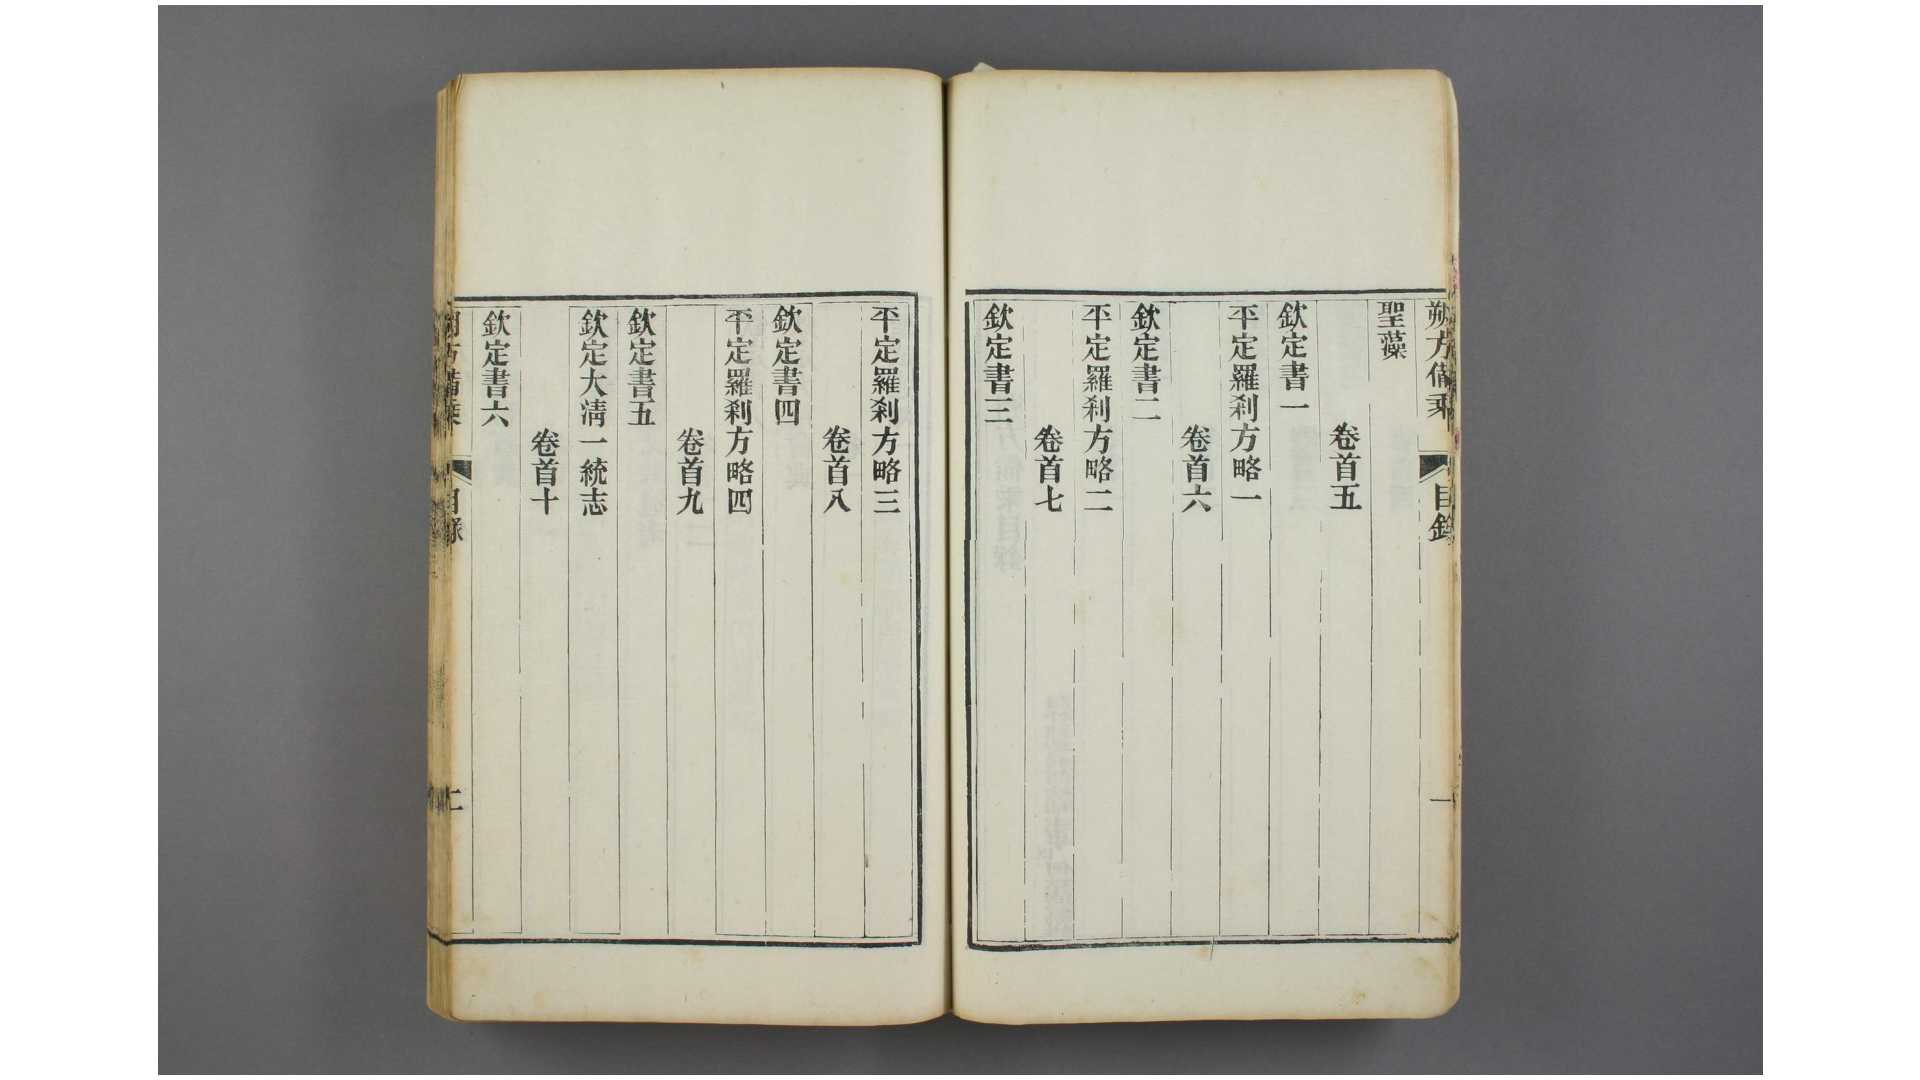 朔方備乘
目錄
一
聖藻
卷首五
欽定書一
平定羅刹方略一
卷首六
欽定書二
平定羅刹方略二
卷首七
欽定書三
平定羅刹方略三
卷首八
欽定書四
平定羅刹方略四
卷首九
欽定書五
欽定大清一統志
卷首十
欽定書六
朔方備乘
目錄
二